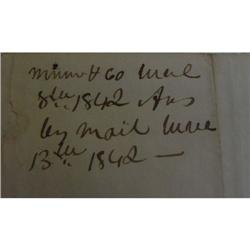 & Co
8th 1842 Ans
by mail June
13th 1842 —